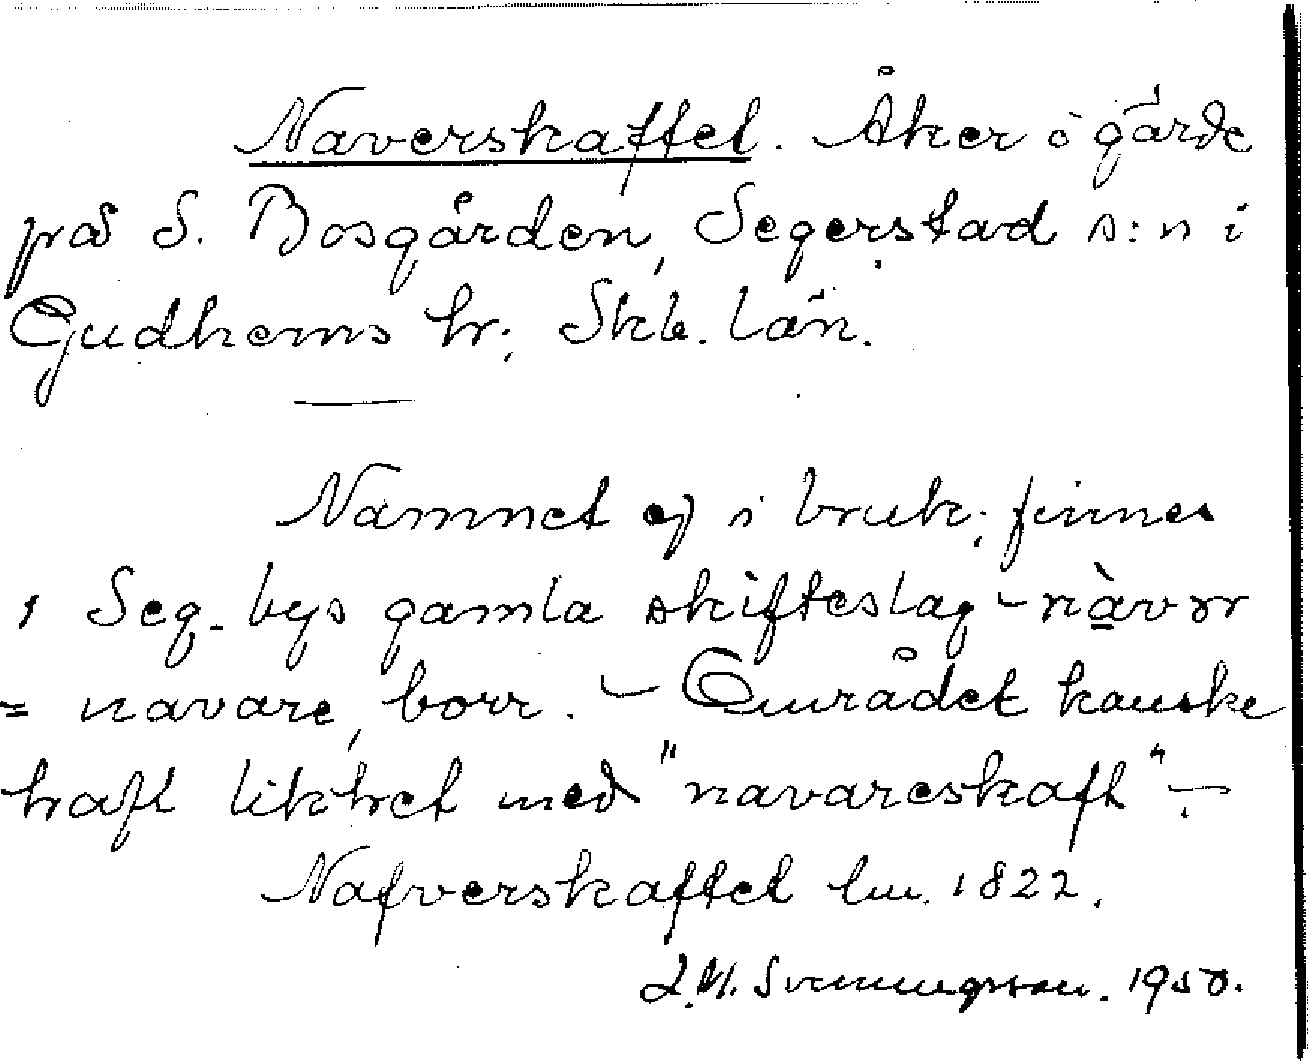 Naverskaftet. Åker ö gärde
på S. Bosgården, Segerstad s:n i
Gudhems hr; Skb. län.
Namnet ej i bruk; finnes
i Seg. bys gamla skifteslag - nàvor
= navare, borr. - Området kanske
haft likhet med "navareskaft" -
Nafverskaftet lm. 1822.
Svenningsson. 1950.